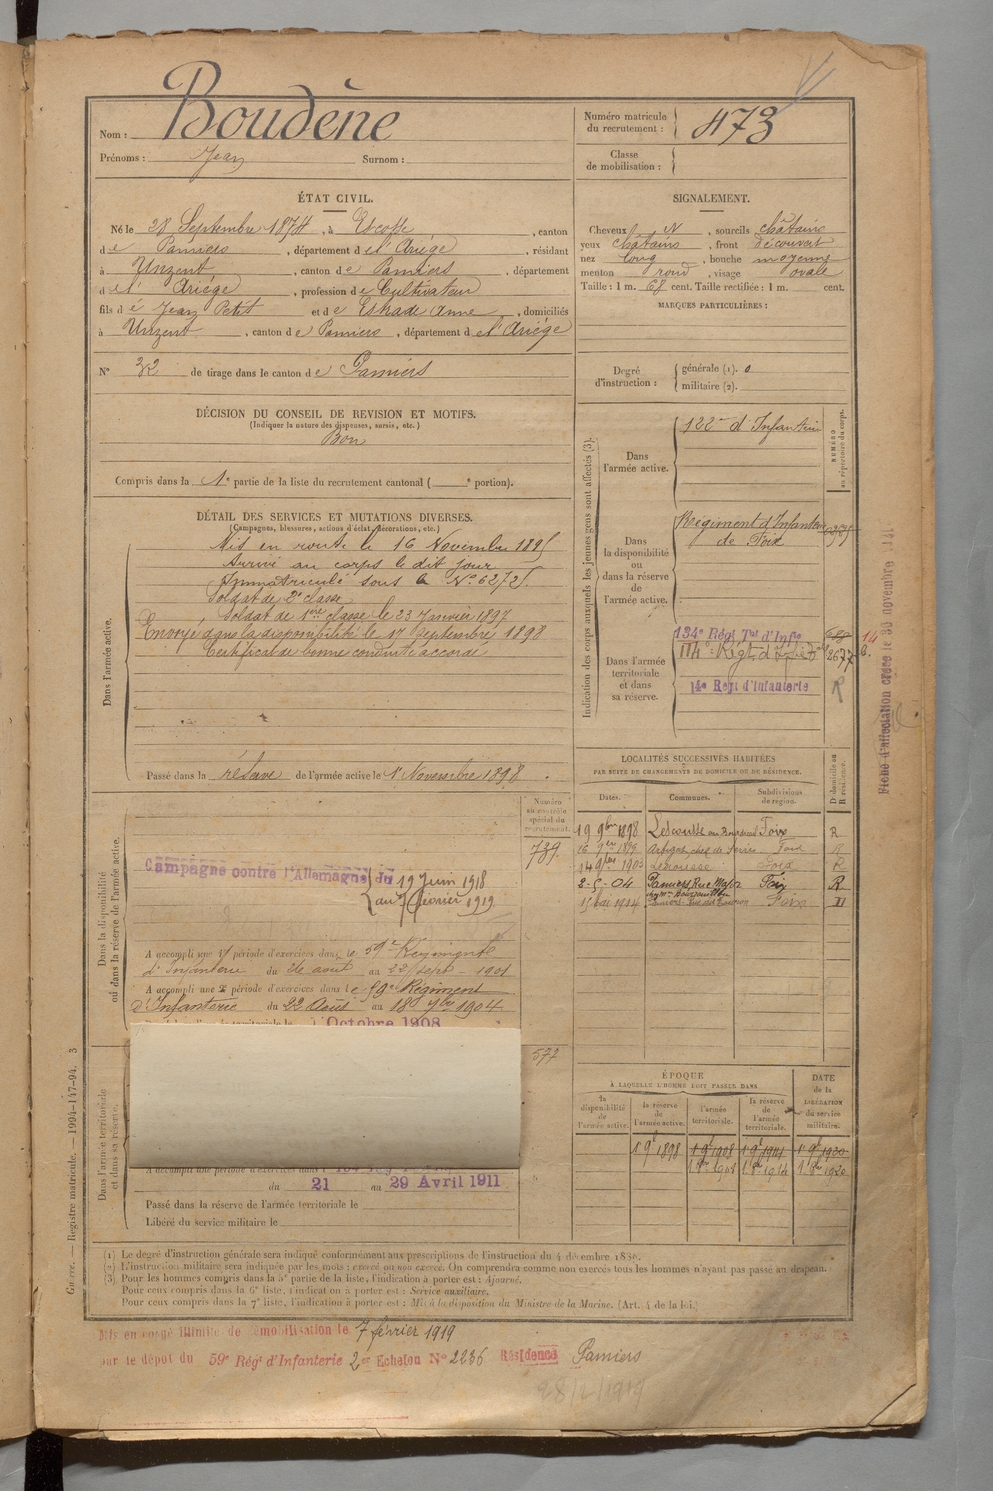 Nom : Boudène
Prénoms : Jean Surnom :
Numéro matricule du recrutement : 473
Classe de mobilisation :
ÉTAT CIVIL.
Né le 28 Septembre 1874, à Escosse, canton
de Pamiers, département de l'Ariège, résidant
à Unzent, canton de Pamiers, département
de l'Ariège, profession de Cultivateur
fils de Jean Petit et de Estrade Anne, domiciliés
à Unzent, canton de Pamiers, département de l'Ariège
N° 32 de tirage dans le canton de Pamiers
SIGNALEMENT.
Cheveux N, sourcils châtains
yeux châtains, front découvert
nez long, bouche moyenne
menton rond, visage ovale
Taille : 1 m. 68 cent. Taille rectifiée : 1 m. cent.
MARQUES PARTICULIÈRES :
Degré d'instruction : générale (1). 0
militaire (2).
DÉCISION DU CONSEIL DE REVISION ET MOTIFS.
(Indiquer la nature des dispenses, sursis, etc.)
Bon
Compris dans la 1e partie de la liste du recrutement cantonal ( e portion).
DÉTAIL DES SERVICES ET MUTATIONS DIVERSES.
(Campagnes, blessures, actions d'éclat, décorations, etc.)
Dans l'armée active.
Mis en route le 16 Novembre 1895
Arrivé au corps le dit jour
Immatriculé sous le N° 6272
Soldat de 2e classe
Soldat de 1ère classe le 23 Janvier 1897
Envoyé dans la disponibilité le 17 Septembre 1898
Certificat de bonne conduite accordé
Passé dans la réserve de l'armée active le 1er Novembre 1898.
Indication des corps auxquels les jeunes gens sont affectés (3).
NUMÉRO au répertoire du corps.
Dans l'armée active.
122e d'Infanterie
Dans la disponibilité ou dans la réserve de l'armée active.
Régiment d'Infanterie
de Foix
Dans l'armée territoriale et dans sa réserve.
134e Régt Tal d'Infie
14e Régt d'Infanterie
2677
R
Fiche d'affectation créée le 30 novembre
LOCALITÉS SUCCESSIVES HABITÉES
PAR SUITE DE CHANGEMENTS DE DOMICILE OU DE RÉSIDENCE.
Dates. Communes. Subdivisions de région. D domicile ou R résidence.
19 9bre 1898 Foix R
Foix R
14 9bre 1903 Foix R
2-5-04 Pamiers Rue Major Foix R
1914 Pamiers Foix D
Dans la disponibilité ou dans la réserve de l'armée active.
Numéro au contrôle spécial du recrutement.
739
Campagne contre l'Allemagne du 19 Juin 1918
au 7 février 1919
A accompli une 1e période d'exercices dans le 59e Régiment
d'Infanterie du 26 août au 22 sept 1901
A accompli une 2e période d'exercices dans le 59e Régiment
d'Infanterie du 22 Août au 18 7bre 1904
Octobre 1908
Dans l'armée territoriale et dans sa réserve.
577
A accompli une période d'exercices dans
du 21 au 29 Avril 1911
Passé dans la réserve de l'armée territoriale le
Libéré du service militaire le
ÉPOQUE
À LAQUELLE L'HOMME DOIT PASSER DANS
DATE de la LIBÉRATION du service militaire.
la disponibilité de l'armée active. la réserve de l'armée active. l'armée territoriale. la réserve de l'armée territoriale.
1 9bre 1898 1 9bre 1908 1 9bre 1914 1 9bre 1920
1 8bre 1908 1 8bre 1914 1 8bre 1920
(1) Le degré d'instruction générale sera indiqué conformément aux prescriptions de l'instruction du 4 décembre 1889.
(2) L'instruction militaire sera indiquée par les mots : exercé ou non exercé. On comprendra comme non exercés tous les hommes n'ayant pas passé au drapeau.
(3) Pour les hommes compris dans la 5e partie de la liste, l'indication à porter est : Ajourné.
Pour ceux compris dans la 6e liste, l'indication à porter est : Service auxiliaire.
Pour ceux compris dans la 7e liste, l'indication à porter est : Mis à la disposition du Ministre de la Marine. (Art. 4 de la loi.)
Guerre. — Registre matricule. — 1994-147-94. 3
Mis en congé illimité de démobilisation le 7 février 1919
par le dépôt du 59e Régt d'Infanterie 2er Echelon N° 2236 Résidence Pamiers
28/2/1919